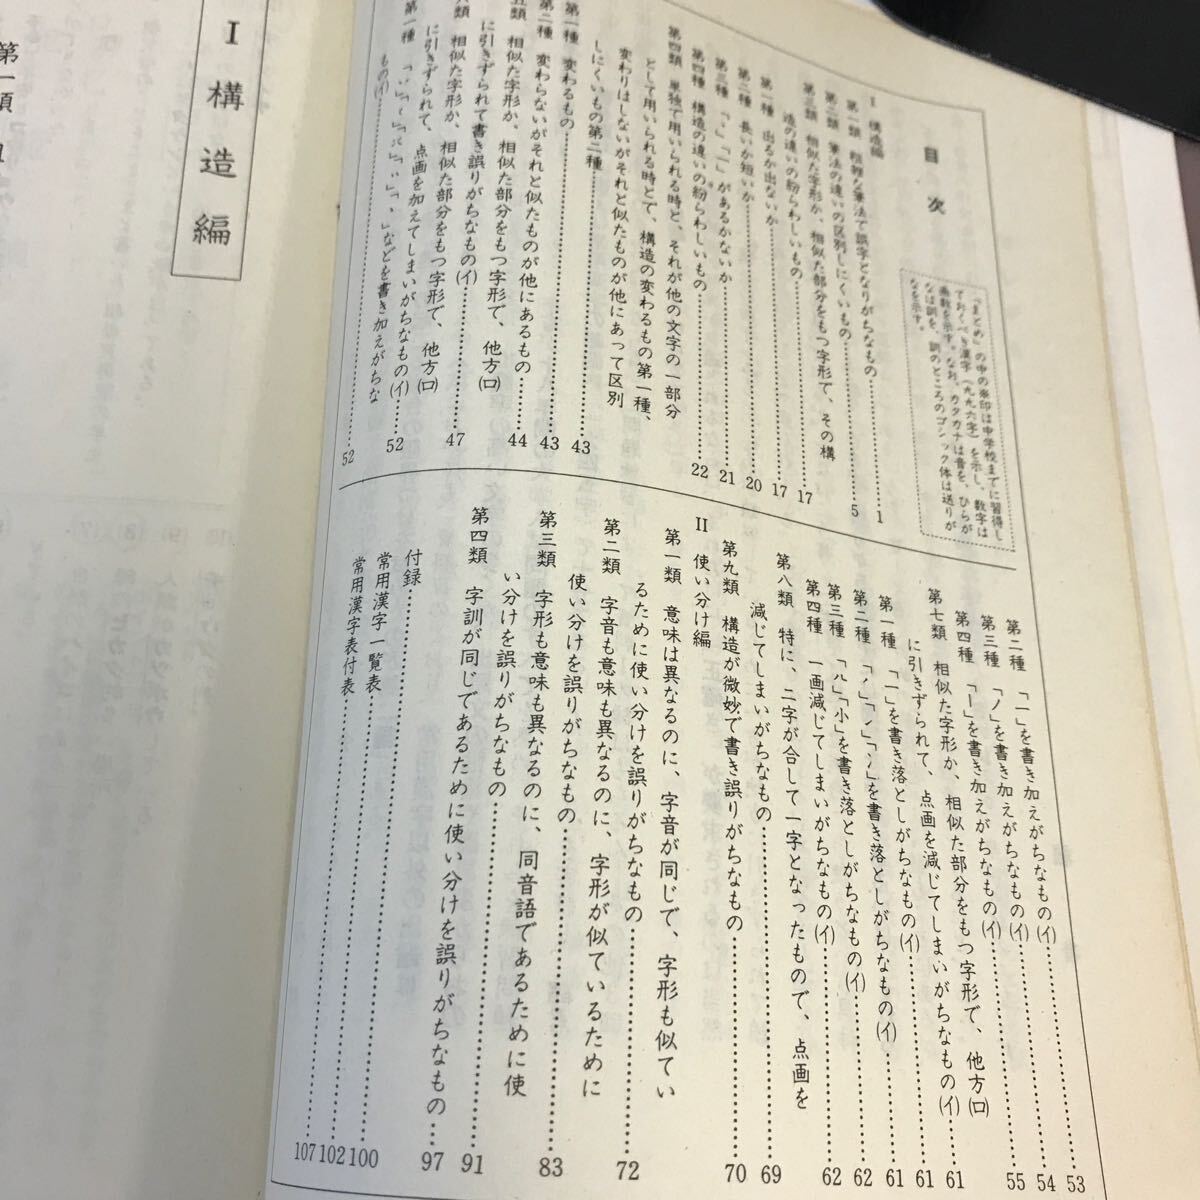 目次
「まとめ」の中の※印は中学校までに習得し
ておくべき漢字(九九六字)を示し、数字は
画数を示す。なお、カタカナは音を、ひらが
なは訓を、訓のところのゴシック体は送りが
なを示す。
I 構造編
第一類 粗雑な筆法で誤字となりがちなもの……1
第二類 筆法の違いの区別しにくいもの……5
第三類 相似た字形か、相似た部分をもつ字形で、その構
造の違いの紛らわしいもの……17
第一種 出るか出ないか……17
第二種 長いか短いか……20
第三種 「丶」「一」があるかないか……21
第四種 構造の違いの紛らわしいもの……22
第四類 単独で用いられる時と、それが他の文字の一部分
として用いられる時とで、構造の変わるもの第一種、
変わりはしないがそれと似たものが他にあって区別
しにくいもの第二種
第一種 変わるもの……43
第二種 変わらないがそれと似たものが他にあるもの……43
五類 相似た字形か、相似た部分をもつ字形で、他方(ロ)
に引きずられて書き誤りがちなもの(イ)……44
六類 相似た字形か、相似た部分をもつ字形で、他方(ロ)……47
に引きずられて、点画を加えてしまいがちなもの(イ)……52
第一種
などを書き加えがちな
もの(イ)……52
第二種 「一」を書き加えがちなもの(イ)……53
第三種 「ノ」を書き加えがちなもの(イ)……54
第四種 「丨」を書き加えがちなもの(イ)……55
第七類 相似た字形か、相似た部分をもつ字形で、他方(ロ)
に引きずられて、点画を減じてしまいがちなもの(イ)……61
第一種 「一」を書き落としがちなもの(イ)……61
第二種 を書き落としがちなもの(イ)……61
第三種 「ハ」「小」を書き落としがちなもの(イ)……62
第四種 一画減じてしまいがちなもの(イ)……62
第八類 特に、二字が合して一字となったもので、点画を
減じてしまいがちなもの……69
第九類 構造が微妙で書き誤りがちなもの……70
II 使い分け編
第一類 意味は異なるのに、字音が同じで、字形も似てい
るために使い分けを誤りがちなもの……72
第二類 字音も意味も異なるのに、字形が似ているために
使い分けを誤りがちなもの……83
第三類 字形も意味も異なるのに、同音語であるために使
い分けを誤りがちなもの……91
第四類 字訓が同じであるために使い分けを誤りがちなもの……97
付録……100
常用漢字一覧表……102
常用漢字表付表……107
I 構造編
第一類